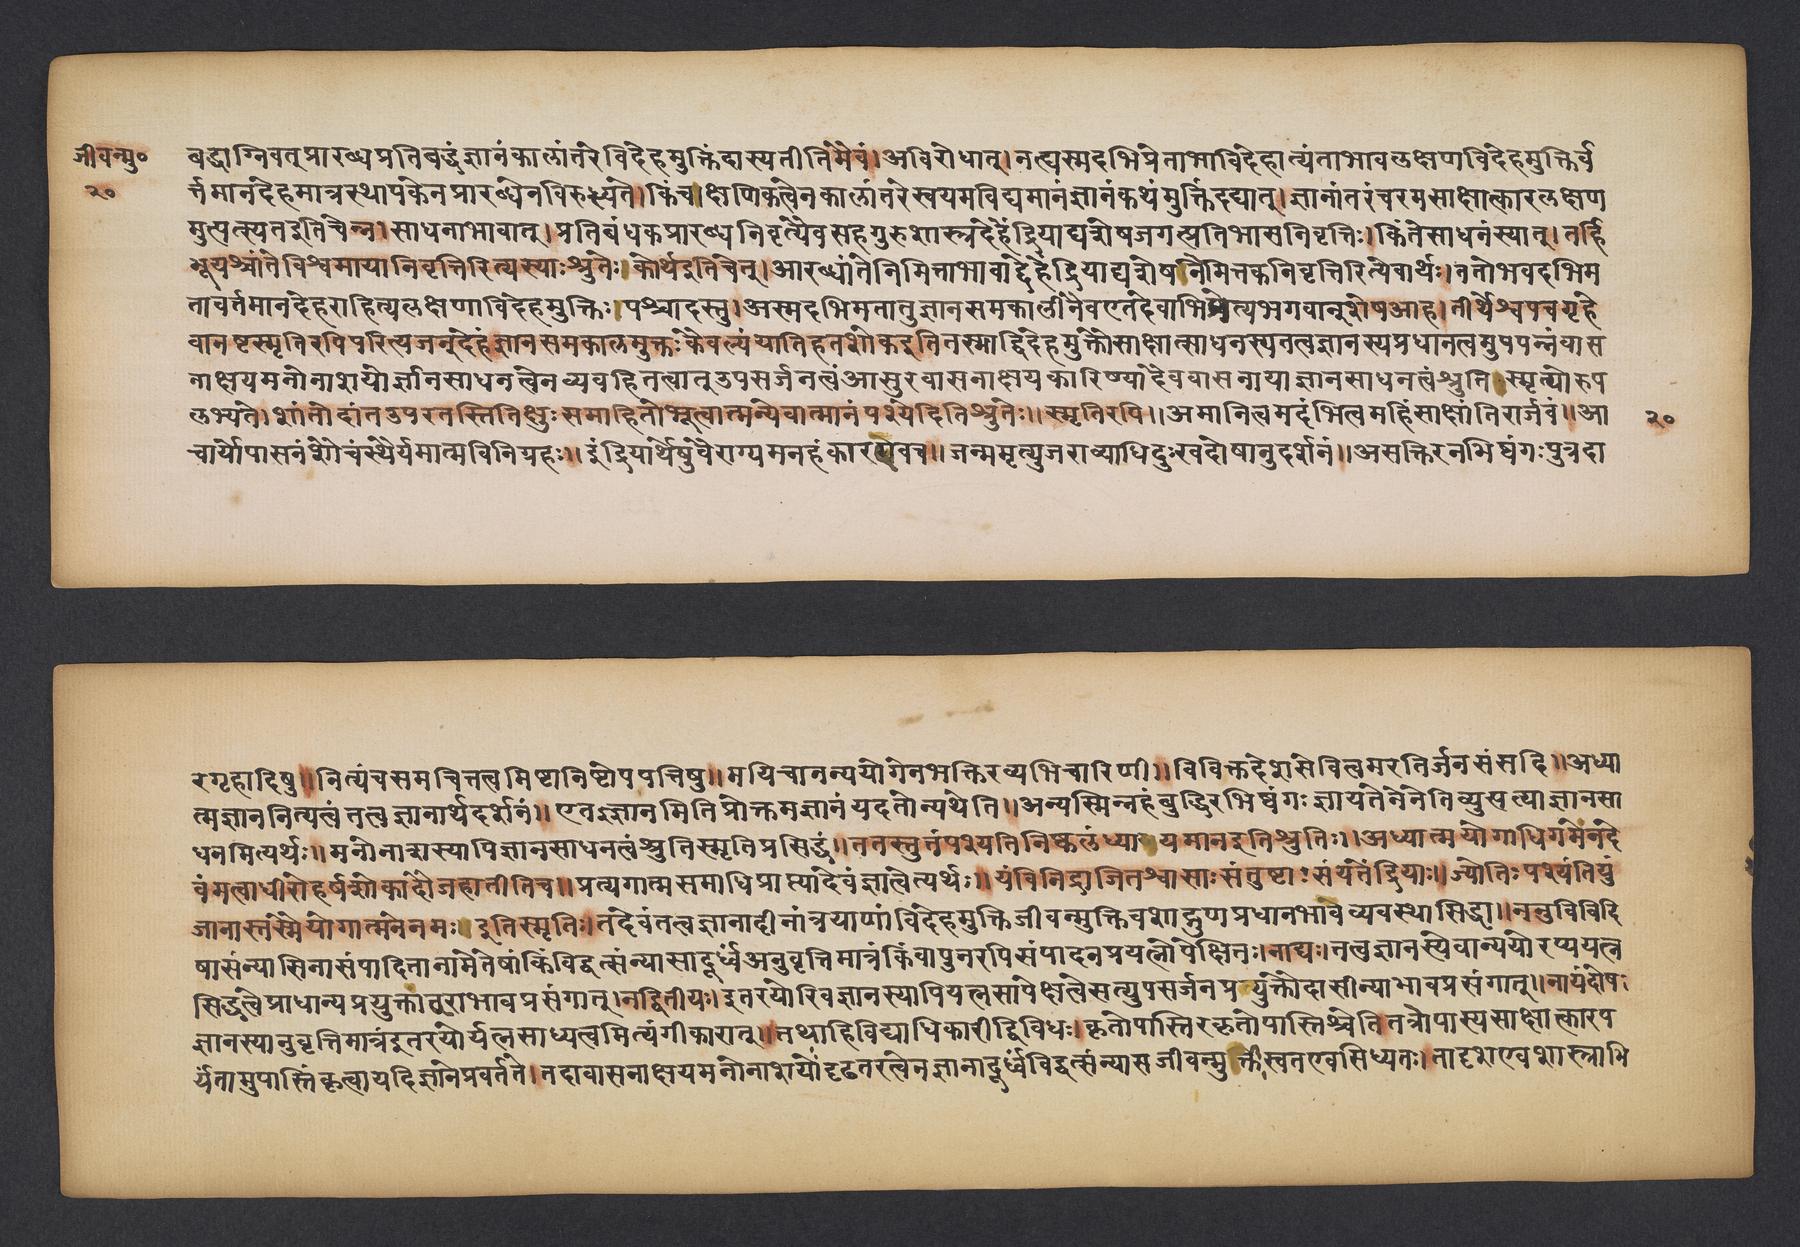 जीवन्मु०
२०
बद्धाग्निवत् प्रारब्धप्रतिबद्धंज्ञानंकालांतरेविदेहमुक्तिंदास्यतीतिमैवं।अविरोधात्।नत्द्यस्मदभिप्रेताभाविदेहात्यंताभावलक्षणविदेहमुक्तिर्व
र्त्तमानदेहमात्रस्थापकेनप्रारब्धेनविरुध्यते।किंच।क्षणिकत्वेनकालांतरेस्वयमविद्यमानंज्ञानंकथंमुक्तिंदद्यात्।ज्ञानांतरंचरमसाक्षात्कारलक्षण
मुत्पत्स्यतइतिचेन्न।साधनाभावात्।प्रतिबंधकप्रारब्धनिवृत्यैवसहगुरुशास्त्रदेहेंद्रियाद्यशेषजगत्प्रतिभासनिवृत्तिः।किंतेसाधनंस्यात्।तर्हि
भूयश्चांतेविश्वमायानिवृत्तिरित्यस्याःश्रुतेः।कोर्थइतिचेत्।आरब्धांतेनिमित्ताभावाद्देहेंद्रियाद्यशेषनैमित्तकनिवृत्तिरित्येवार्थः।ततोभवदभिम
तावर्तमानदेहराहित्यलक्षणाविदेहमुक्तिः।पश्चादस्तु।अस्मदभिमतातुज्ञानसमकालीनैवएतदेवाभिप्रेत्यभगवान्शेषआह।तीर्थेश्वपचगृहे
वानष्टस्मृतिरपिपरित्यजन्देहंज्ञानसमकालमुक्तःकेवल्यंयातिहतशोकइतितस्माद्विदेहमुक्तौसाक्षात्साधनस्यतत्वज्ञानस्यप्रधानत्वमुपपन्नंवास
नाक्षयमनोनाशयोर्ज्ञानसाधनत्वेनव्यवहितत्वात्उपसर्जनत्वंआसुरवासनाक्षयकारिण्यादैववासनायाज्ञानसाधनत्वंश्रुतिस्मृत्योरुप
लभ्यते।शांतोदांतउपरतस्तितिक्षुःसमाहितोभूत्वात्मन्येवात्मानंपश्येदितिश्रुतेः॥स्मृतिरपि॥अमानित्वमदंभित्वमहिंसाक्षांतिरार्जवं॥आ
२०
चार्योपासनंशौचंस्थैर्यमात्मविनिग्रहः॥इंद्रियार्थेषुवैराग्यमनहंकारएवच॥जन्ममृत्युजराव्याधिदुःखदोषानुदर्शनं॥असक्तिरनभिष्वंगःपुत्रदा
रगृहादिषु॥नित्यंचसमचित्तत्वमिष्टानिष्टोपपत्तिषु॥मयिचानन्ययोगेनभक्तिरव्यभिचारिणी॥विविक्तदेशसेवित्वमरतिर्जनसंसदि॥अध्या
त्मज्ञाननित्यत्वंतत्वज्ञानार्थदर्शनं॥एतज्ज्ञानमितिप्रोक्तमज्ञानंयदतोन्यथेति॥अन्यस्मिन्नहंबुद्धिरभिष्वंगःज्ञायतेनेनेतिव्युत्पत्याज्ञानसा
धनमित्यर्थः॥मनोनाशस्यापिज्ञानसाधनत्वंश्रुतिस्मृतिप्रसिद्धं॥ततस्तुतंपश्यतिनिष्कलंध्यायमानइतिश्रुतिः॥अध्यात्मयोगाधिगमेनदे
वंमत्वाधीरोहर्षशोकौजहातीतिच॥प्रत्यगात्मसमाधिप्राप्त्यादेवंज्ञात्वेत्यर्थः॥यंविनिद्राजितश्वासाःसंतुष्टाःसंयतेंद्रियाः॥ज्योतिःपश्यंतियुं
जानास्तस्मैयोगात्मनेनमः।इतिस्मृतिः।तदेवंतत्वज्ञानादीनांत्रयाणांविदेहमुक्तिजीवन्मुक्तिवशाद्गुणप्रधानभावव्यवस्थासिद्धा॥ननुविविदि
षासंन्यासिनासंपादितानामेतेषांकिंविद्वत्संन्यासादूर्ध्वंअनुवृत्तिमात्रंकिंवापुनरपिसंपादनप्रयत्नोपेक्षितः।नाद्यः।तत्वज्ञानस्येवान्ययोरप्ययत्न
सिद्धत्वेप्राधान्यप्रयुक्तादराभावप्रसंगात्।नद्वितीयः।इतरयोरिवज्ञानस्यापियत्नसापेक्षत्वेसत्युपसर्जनप्रयुक्तौदासीन्याभावप्रसंगात्॥नायंदोषः
ज्ञानस्यानुवृत्तिमात्रंइतरयोर्यत्नसाध्यत्वमित्यंगीकारात्॥तथाहिविद्याधिकारीद्विविधः।कृतोपास्तिरकृतोपास्तिश्चेतितत्रोपास्यसाक्षात्कारप
र्यंतामुपास्तिंकृत्वायदिज्ञानेप्रवर्तते।तदावासनाक्षयमनोनाशयोर्दृढतरत्वेनज्ञानादूर्ध्वंविद्वत्संन्यासजीवन्मुक्तीस्वतएवसिध्यतः।तादृशएवशास्त्राभि